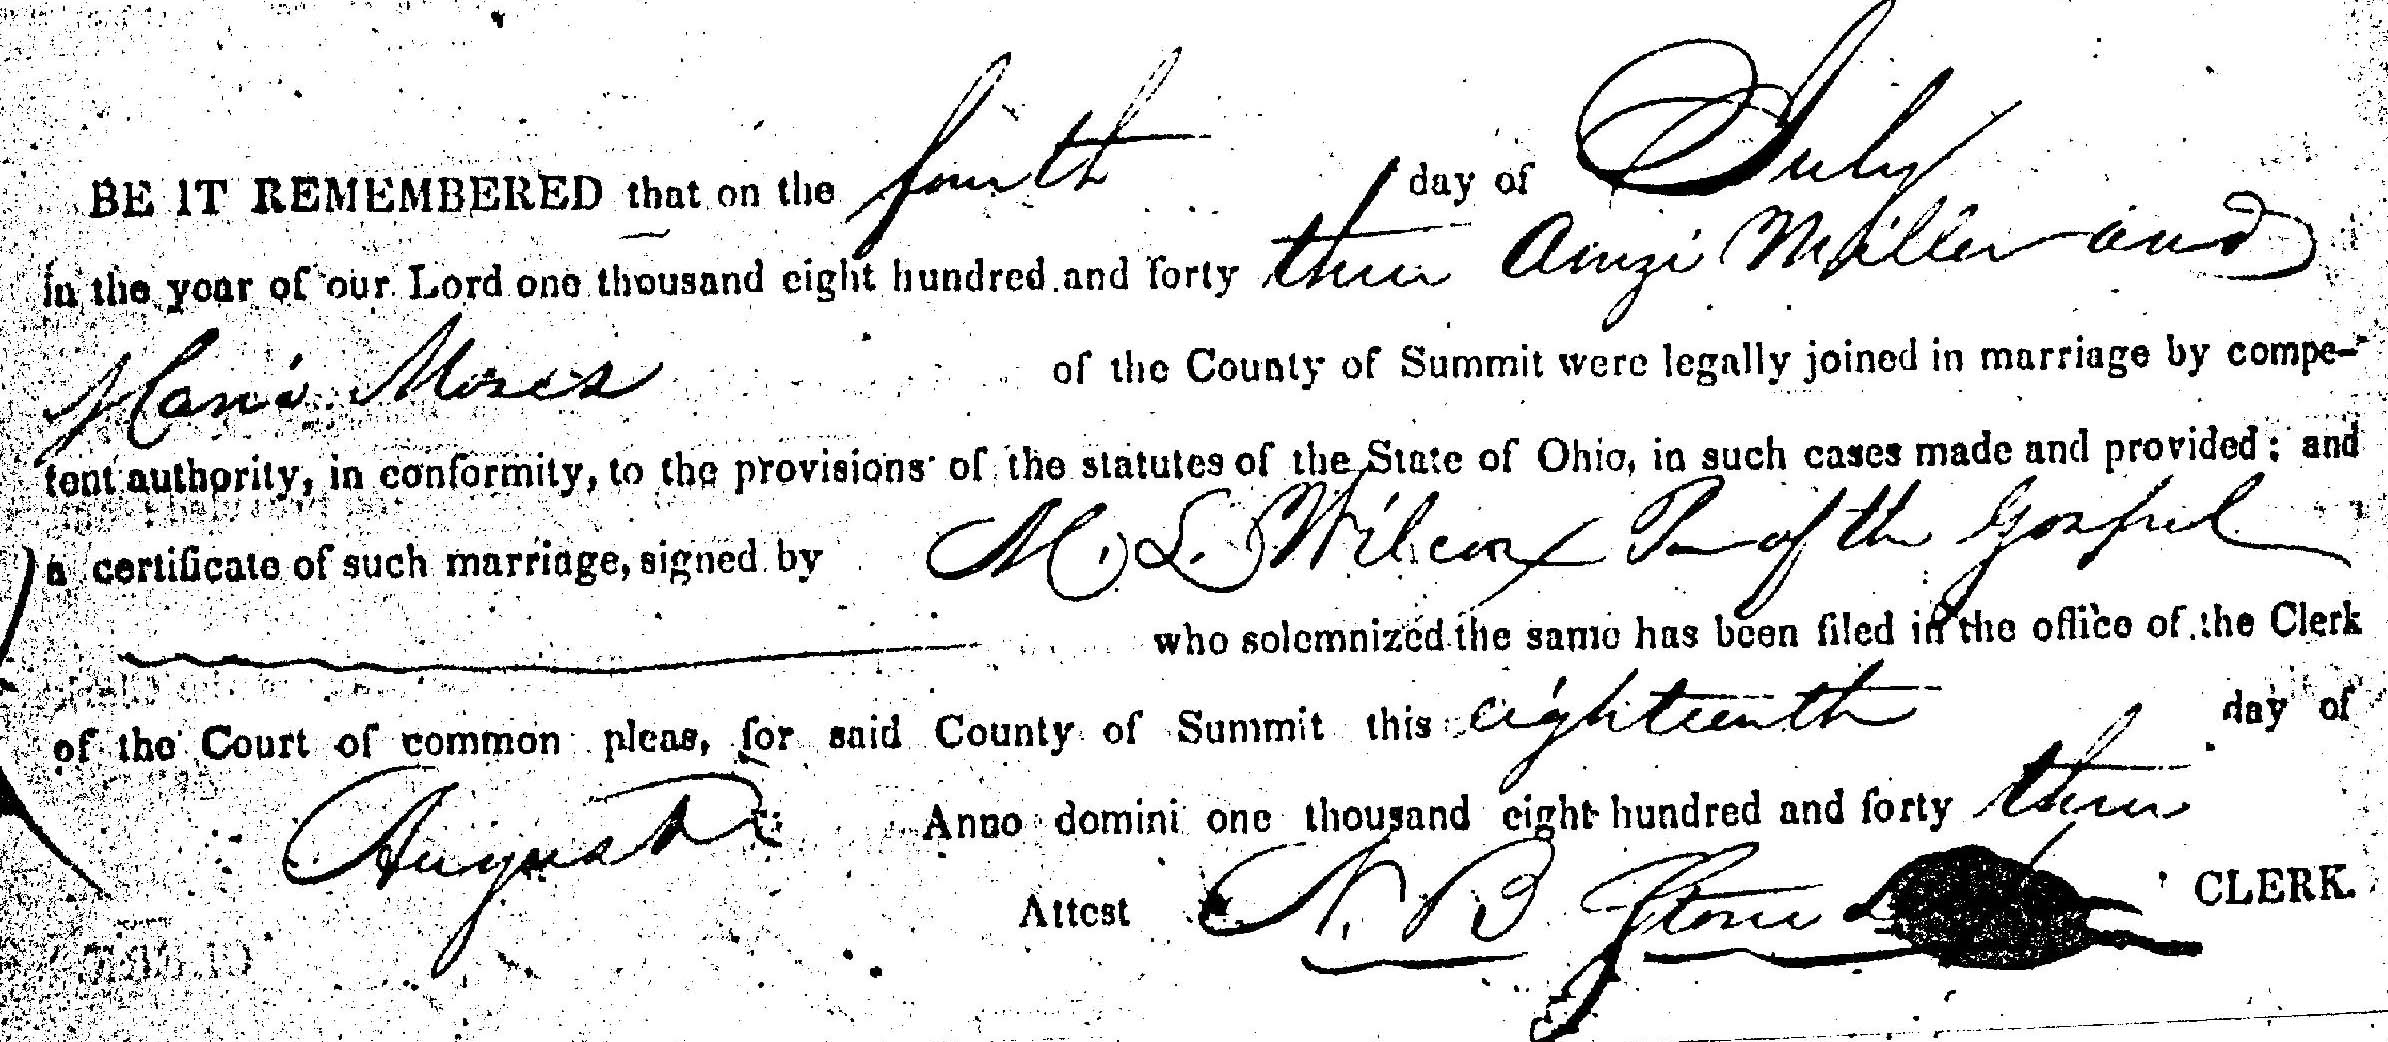 BE IT REMEMBERED that on the fourth day of July
in the year of our Lord one thousand eight hundred and forty three Amzi Miller and
Moses of the County of Summit were legally joined in marriage by compe-
tent authority, in conformity, to the provisions of the statutes of the State of Ohio, in such cases made and provided; and
a certificate of such marriage, signed by M. L. Wilcox of the Gospel
who solemnized the same has been filed in the office of the Clerk
of the Court of common pleas, for said County of Summit this eighteenth day of
August Anno domini one thousand eight hundred and forty three
Attest N. B. Stone CLERK.